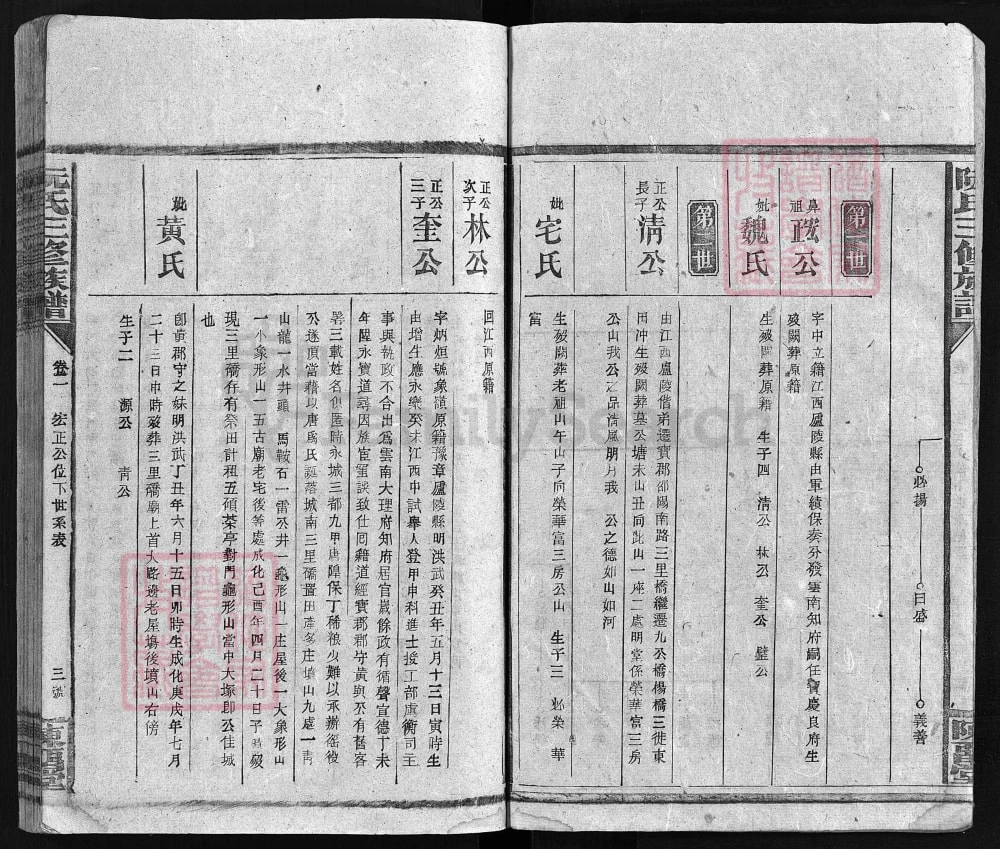 必揚
日盛
義善
第一世
鼻祖 正公
字中立籍江西廬陵縣由軍績保奏分發雲南知府嗣任寶慶良府生
歿闕葬原籍
妣 魏氏
生歿闕葬原籍 生子四 清公 林公 奎公 璧公
第二世
正公長子 清公
由江西廬陵偕弟遷寶郡邵陽南路三里橋繼遷九公橋楊橋三徙東
田沖生歿闕葬墓公塘未山丑向此山一座二處明堂係榮華富三房
公山我公之品清風朗月我 公之德如山如河
妣 宅氏
生歿闕葬老祖山午山子向榮華富三房公山 生子三 必榮 華
富
正公次子 林公
回江西原籍
正公三子 奎公
字炳烜號象瀛原籍豫章廬陵縣明洪武癸丑年五月十三日寅時生
由增生應永樂癸未江西中試舉人登甲申科進士授工部虞衡司主
事與執政不合出為雲南大理府知府居官歲餘政有循聲宣德丁未
年陞永寶道尋因族宦星談致仕回籍道經寶郡郡守黃與公有舊客
署三載姓名俱匿時永城三都九甲唐隍保丁稀粮少難以承辦徭役
公遂頂當籍以唐為氏誕落城南三里礄置田產多庄墳山九處一青
山龍一水井頭 馬鞍石一雷公井一龜形山一庄屋後一大象形山
一小象形山一五古廟老宅後等處成化己酉年四月二十日子時歿
現三里礄存有祭田計租五碩菜亭對門龜形山當中大塚即公佳城
也
妣 黃氏
卽黃郡守之妹明洪武丁丑年六月十五日卯時生成化庚戌年七月
二十三日申時歿葬三里礄廟上首大路邊老屋塲後墳山右傍
生子二 源公 青公
阮氏三修族譜 卷一 宏正公位下世系表 三號